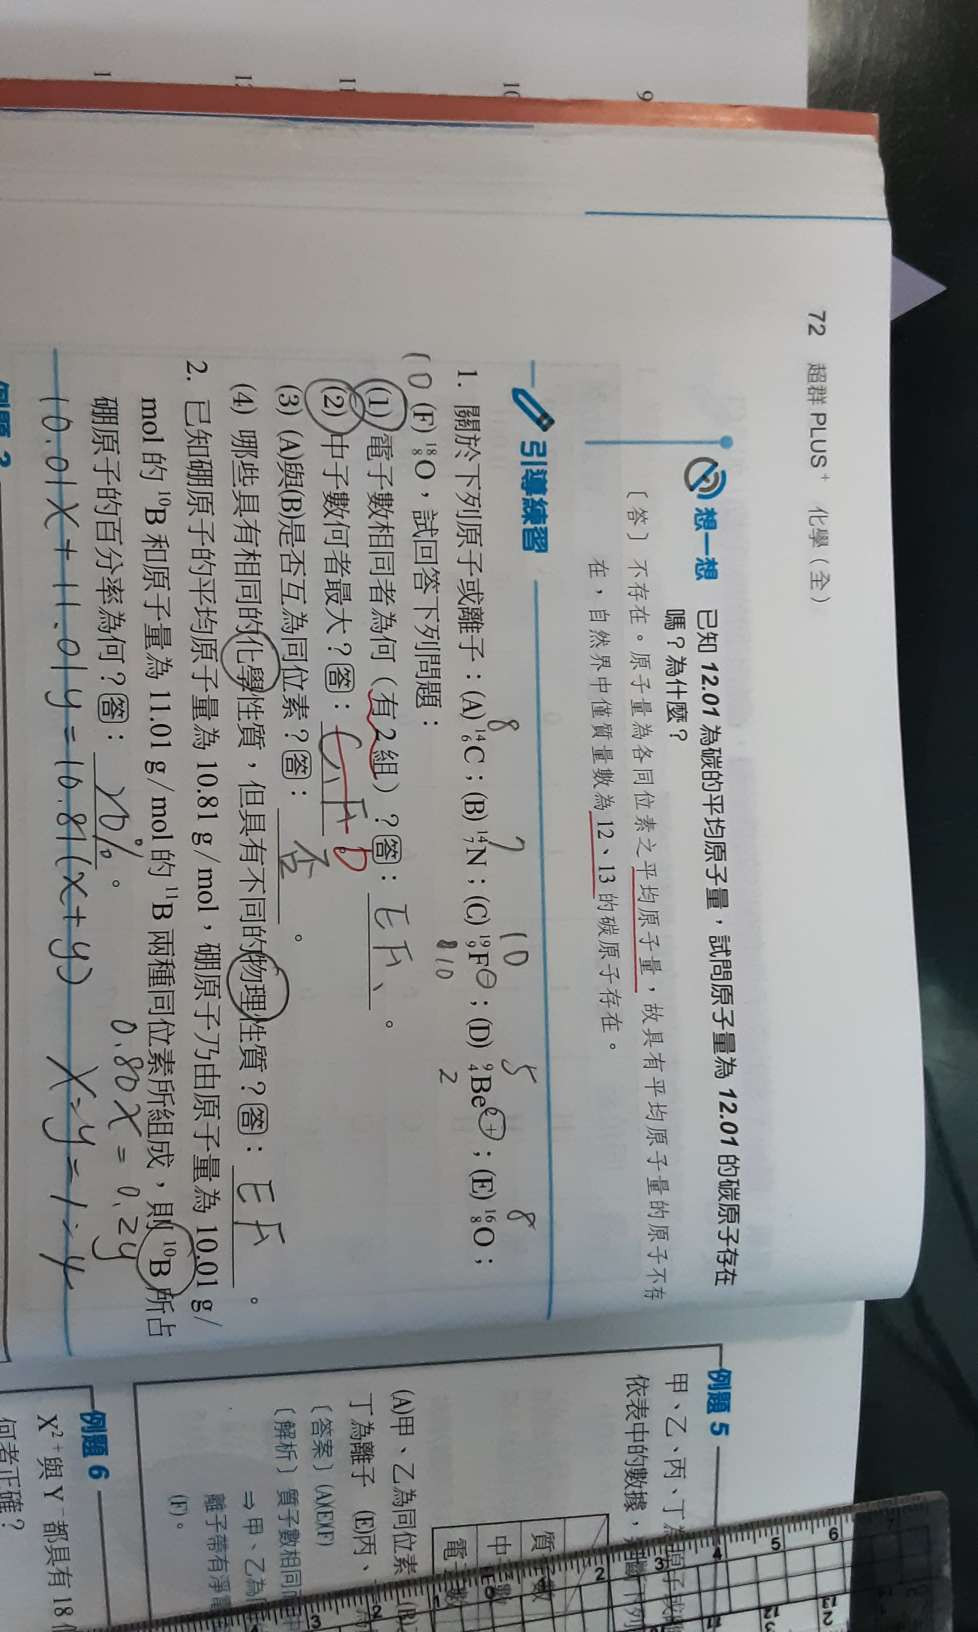 72 超群 PLUS⁺ 化學（全）
想一想 已知 12.01 為碳的平均原子量，試問原子量為 12.01 的碳原子存在
嗎？為什麼？
〔答〕不存在。原子量為各同位素之平均原子量，故具有平均原子量的原子不存
在，自然界中僅質量數為12、13 的碳原子存在。
引導練習
8 7 10 5 8
1. 關於下列原子或離子：(A) ¹⁴₆C；(B) ¹⁴₇N；(C) ¹⁹₉F⊖；(D) ⁹₄Be²⁺；(E) ¹⁶₈O；
10 2
10 (F) ¹⁸₈O，試回答下列問題：
(1) 電子數相同者為何（有 2 組）？答：E F、。
(2) 中子數何者最大？答：C、F D
(3) (A)與(B)是否互為同位素？答：否。
(4) 哪些具有相同的化學性質，但具有不同的物理性質？答：E F。
2. 已知硼原子的平均原子量為 10.81 g / mol，硼原子乃由原子量為 10.01 g /
mol 的 ¹⁰B 和原子量為 11.01 g / mol 的 ¹¹B 兩種同位素所組成，則 ¹⁰B 所占
硼原子的百分率為何？答：20%。
0.80X = 0.2y
10.01X + 11.01y = 10.81(x+y) X:y = 1:4
例題 5
甲、乙、丙、丁
依表中的數據，
質
中
電
(A)甲、乙為同位素
丁為離子 (E)丙、
〔答案〕(A)(E)(F)
〔解析〕質子數相同而中
⇒ 甲、乙為
離子帶有淨電
(F)。
例題 6
X²⁺ 與 Y⁻ 都具有 18
何者正確？
9
10
11